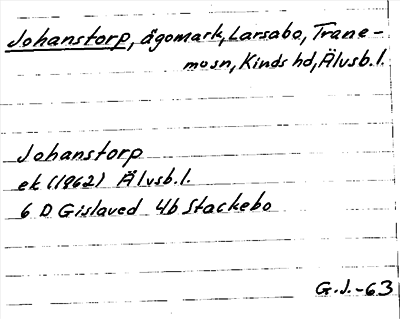 Johanstorp, ägomark, Larsabo, Trane-
mo sn, Kinds hd, Älvsb. l.
Johanstorp
ek (1962) Älvsb. l.
6 D Gislaved 4b Stackebo
G. J. -63